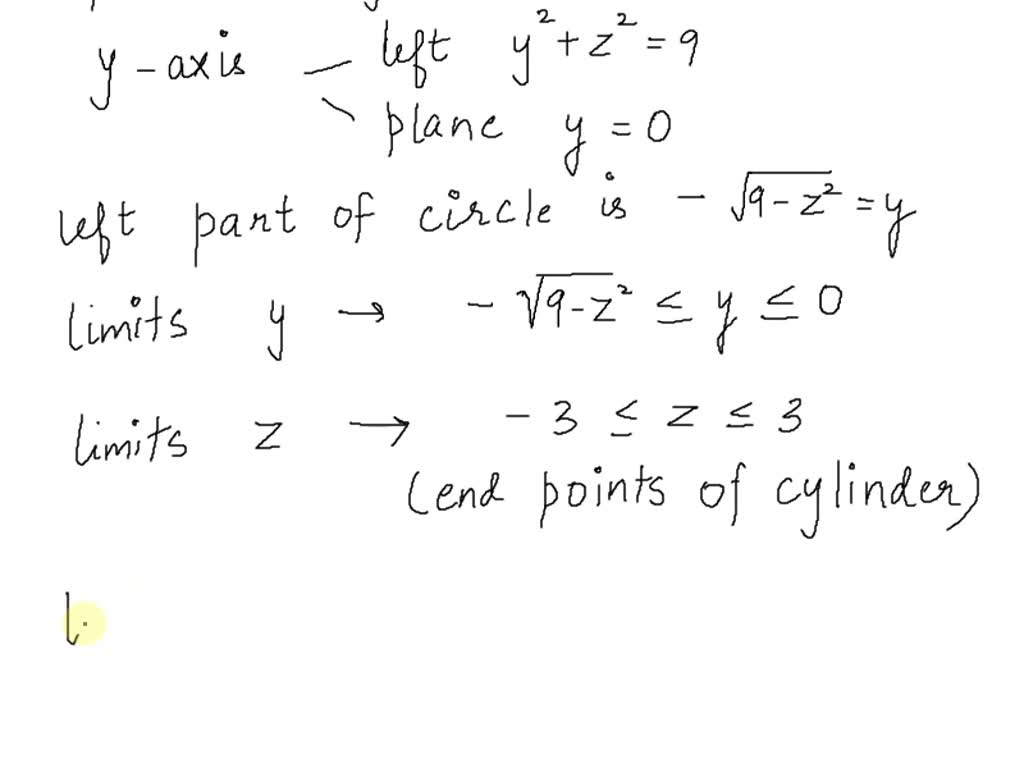 y - axis — left y² + z² = 9
\ plane y = 0
left part of circle is - √9-z² = y
limits y → - √9-z² ≤ y ≤ 0
limits z → - 3 ≤ z ≤ 3
(end points of cylinder)